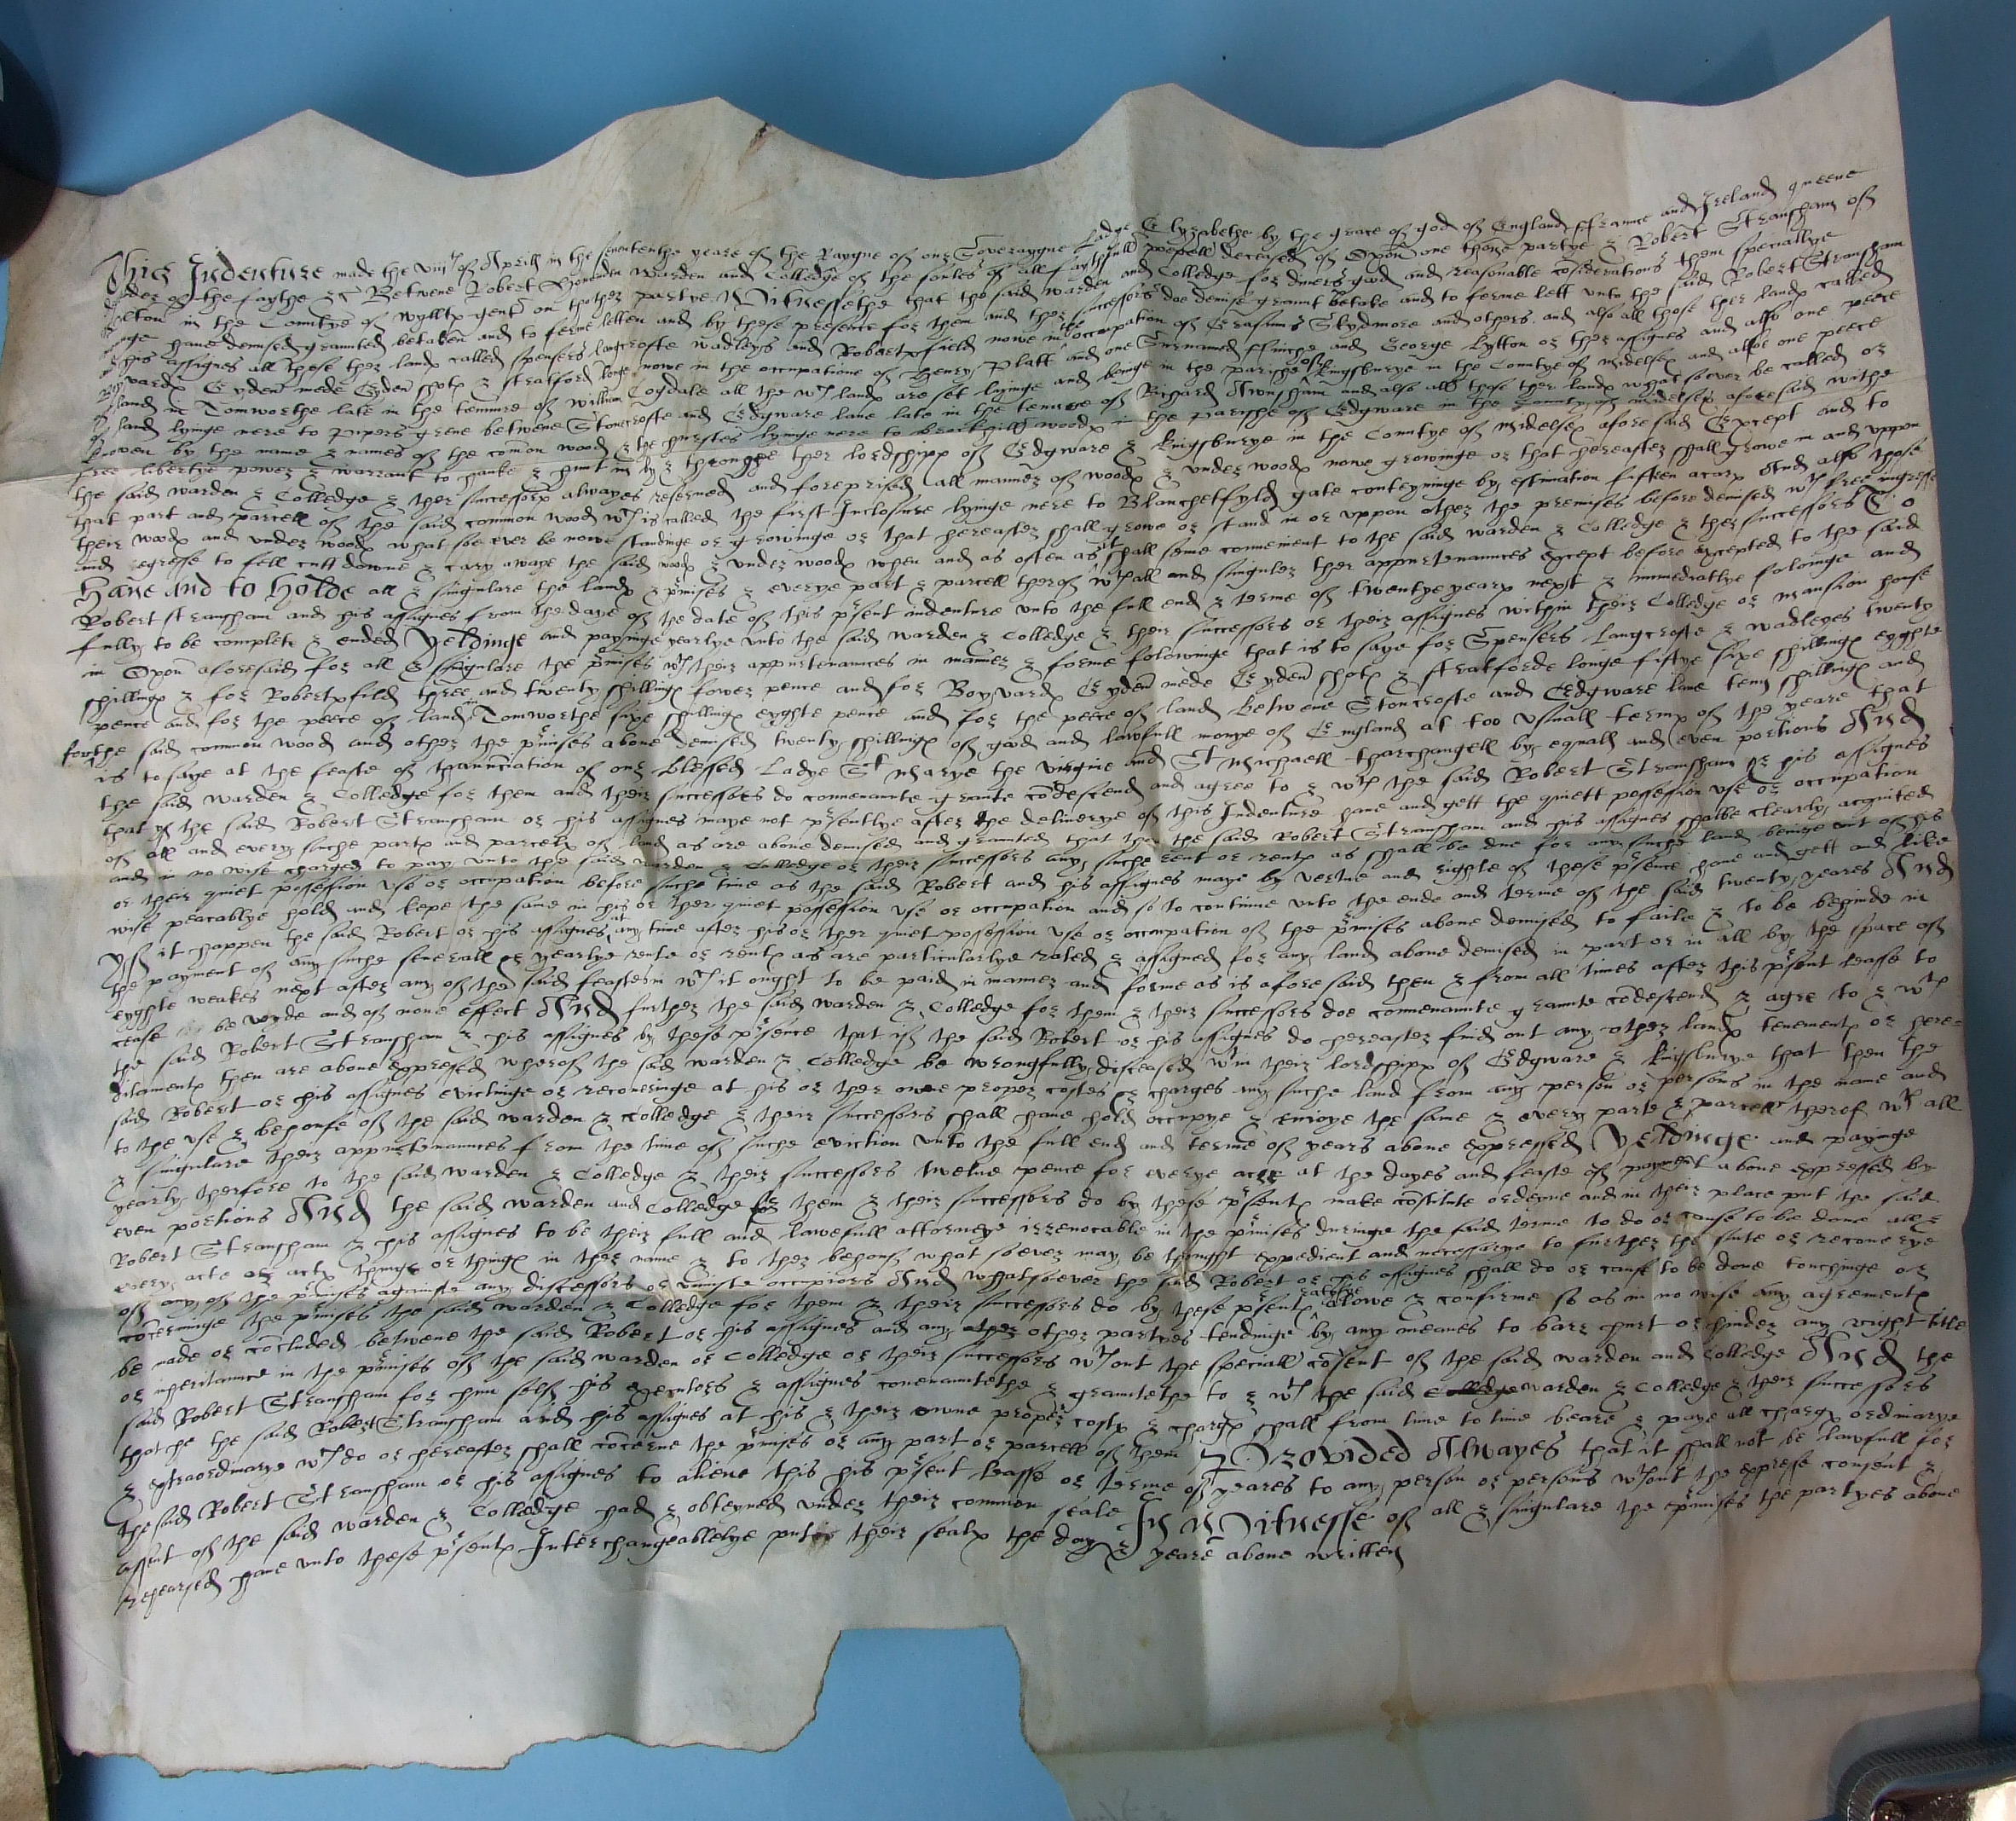 This Indenture made the viijth of Aprill in the sevententhe yeare of the Raygne of our Soveraygne Ladye Elyzabethe by the grace of god of England ffraunce and Ireland queene
of the faythe &c Betwene Robert Hovenden warden and Colledge of the soules of all faythfull people deceased of Oxon one thone partye & Robert Stransham of
in the Countye of wylltx gent on thother partye Witnessethe that the said warden and Colledge for divers good and reasonable considerations them speciallye
have demised graunted betaken and to ferme letten and by these presence for them and ther successors doe demise graunt betake and to ferme lett unto the said Robert Stransham
his assignes all those ther landx called spensers langcrofte wadleys and Robertxfield nowe in the occupation of Erasmus Skydmore and others and also all those ther landx called
Eyden mede Eyden shotx & stratford longe nowe in the occupatione of Henry Platt and one Surnamed ffinche and George Lytton or ther assignes and also one peece
of land in Tomworthe late in the tenure of William Coxdale all the wch landx are set lyinge and beinge in the parishe of Kingsburye in the Countye of midelsex and also one peece
of land lyinge nere to pypers grene betwene Stoncrofte and Edgware lane late in the tenure of Richard Awnsham and also all those ther landx whatsoever be called or
knoven by the name & names of the common wood & the hurstes lyinge nere to brockhill woodx in the parishe of Edgware in the county of midelsex aforesaid withe
free libertye power & warrant to hauke & hunt in by & throughe ther lordshipp of Edgware & Kingsburye in the Countye of midelsex aforesaid Except and to
the said warden & Colledge & ther successorx alwayes reserved and foreprised all manner of woodx & under woodx nowe growinge or that hereafter shall growe in and uppon
that part and parcell of the said common wood wch is called the first Inclosure lyinge nere to Blanchetfyld gate conteyninge by estimation fifteen acarx And also those
their woodx and under woodx what soever be nowe standinge or growinge or that hereafter shall growe or stand in or uppon other the premises before demised wth free ingresse
and regresse to fell cutt downe & cary awaye the said woodx & under woodx when and as often as it shall seme convenient to the said warden & Colledge & ther successors To
Have and to Holde all & singulare the landx & pmises & everye part & parcell therof wth all and singuler ther appurtenaunces except before excepted to the said
Robert stransham and his assignes from the daye of the date of this psent indenture unto the full end & terme of twentye yearx next & immediatlye folowinge and
fully to be complete & ended Yeldinge and payinge yearlye unto the said warden & Colledge & their successors or their assignes within their Colledge or mansion house
in Oxon aforesaid for all & singulare the pmises wth their appurtenaunces in manner & forme folowinge that is to saye for Spensers Langcrofte & wadleyes twenty
shillingx & for Robertxfild three and twenty shillingx fower pence and for Boyvardx Eyden mede Eyden shotx & stratforde longe fiftye sixe shillingx eyghte
pence and for the peece of land in Tomworthe sixe shillingx eyghte pence and for the peece of land betwene Stoncrofte and Edgware lane tenn shillingx and
for the said common wood and other the pmises above demised twenty shillingx of good and lawfull monye of England at too usuall termx of the yeare that
is to saye at the feaste of thanunciation of our blessed Ladye St Marye the virgine and St Michaell tharchangell by equall and even portions And
the said warden & Colledge for them and their successors do covenante graunte condescend and agree to & wth the said Robert Stransham or his assignes
that yf the said Robert Stransham or his assignes maye not psentlye after the deliverye of this Indenture have and gett the quiett possession use or occupation
of all and every suche partx and parcelx of land as are above demised and graunted that then the said Robert Stransham and his assignes shalbe clearly acquited
and in no wise charged to pay unto the said warden & Colledge or their successors any suche rent or rentx as shall be due for any suche land beinge out of his
or their quiet possession use or occupation before suche time as the said Robert and his assignes maye by vertue and righte of these psence have and gett and like
wise peacablye hold and kepe the same in his or ther quiet possession use or occupation and so to continue unto the ende and terme of the said twenty yeares And
yff it happen the said Robert or his assignes at any time after his or ther quiet possession use or occupation of the pmises above demised to faile & to be behinde in
the payment of any suche severall or yearlye rente or rentx as are particularlye rated & assigned for any land above demised in part or in all by the space of
eyghte weakes next after any of the said feastes in wch it ought to be paid in manner and forme as is aforesaid then & from all times after this psent leasse to
cease be voyde and of none effect And further the said warden & Colledge for them & their successors doe covenante graunte condescend & agre to & wth
the said Robert Stransham & his assignes by these psence that if the said Robert or his assignes do hereafter find out any other landx tenementx or here=
ditamentx then are above expressed wherof the said warden & Colledge be wrongfully disceased wthin their lordshipp of Edgware & Kingsburye that then the
said Robert or his assignes evictinge or recoveringe at his or ther owne proper costes & charges any suche land from any person or persons in the name and
to the use & behoufe of the said warden & Colledge & their successors shall have hold occupye & enioye the same & every parte & parcell therof wth all
& singulare their appurtenaunces from the time of suche eviction unto the full end and terme of years above expressed Yeldinge and payinge
yearly therfore to the said warden & Colledge & their successors twelve pence for everye acre at the dayes and feaste of payment above expressed by
even portions And the said warden and Colledge for them & their successors do by these psentx make constitute orderne and in their place put the said
Robert Stransham & his assignes to be their full and lawefull attorneye irrevocable in the pmises duringe the said terme to do or cause to be done all &
every acte or actx thinge or thingx in ther name & to ther behouf what soever may be thought expedient and necessarye to further the sute or recoverye
of any of the pmises againste any disceassors or uniuste occupiors And whatsoever the said Robert or his assignes shall do or cause to be done touchinge or
concerninge the pmises the said warden & Colledge for them & their successors do by these psentx ratifye alowe & confirme so as in no wise any agrementx
be made or concluded betwene the said Robert or his assignes and any other partyes tendinge by any meanes to barr hurt or hinder any right title
or inheritaunce in the pmises of the said warden or Colledge or their successors wthout the speciall consent of the said warden and Colledge And the
said Robert Stransham for him self his executors & assignes covenantethe & grauntethe to & wth the said warden & Colledge & their successors
that he the said Robert Stransham and his assignes at his & their owne proper costx & chargx shall from time to time beare & paye all chargx ordinarye
& extraordinarye wch do or hereafter shall concerne the pmises or any part or parcell of them Provided Alwayes that it shall not be lawfull for
the said Robert Stransham or his assignes to aliene this his psent leasse or terme of yeares to any person or persons wthout the expresse consent &
assent of the said warden & Colledge had & obteyned under their common seale In Witnesse of all & singulare the pmises the partyes above
rehearsed have unto these psentx Interchangeablelye put their sealx the day & yeare above written